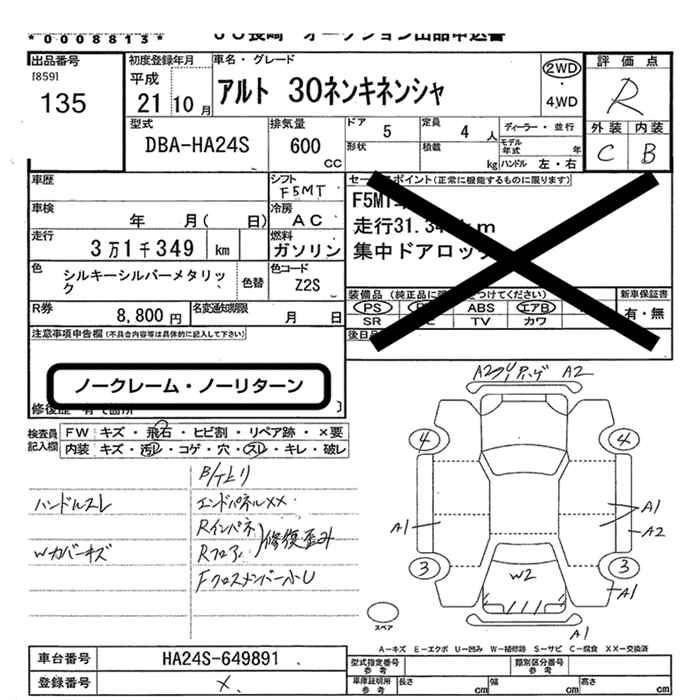 *0008813*
JU長崎 オークション出品申込書
出品番号
[859]
135
初度登録年月
平成
21年10月
車名・グレード
アルト 30ネンキネンシャ
2WD
・
4WD
評価点
R
外装 内装
C B
型式
DBA-HA24S
排気量
600
CC
ドア 5
定員 4 人
形状
積載 kg
ディーラー・並行
モデル年式 年
ハンドル 左・右
車歴
シフト
F5MT
車検
年 月( 日)
冷房
AC
走行
3万1千349 km
燃料
ガソリン
色
シルキーシルバーメタリック
色替
色コード
Z2S
R券
8,800円
名変通知期限
月 日
セールスポイント(正常に機能するものに限ります)
F5MT
走行31.34 km
集中ドアロック
装備品(純正品に つけてください)
新車保証書
PS ABS エアB
SR TV カワ
有・無
後日
注意事項申告欄(不具合内容等は具体的に記入して下さい)
ノークレーム・ノーリターン
修復歴 有(箇所 ]
検査員記入欄
FW キズ・飛石・ヒビ割・リペア跡・×要
内装 キズ・汚レ・コゲ・穴・スレ・キレ・破レ
B/Tヒリ
ハンドルスレ
エンドパネルXX
Rインパネ
Wカバーキズ
Rフロア
修復歪み
Fクロスメンバー小U
A2 A2
4 4
A1 A1
A2
3 3
W2
A1
A1
スペア
A-キズ E-エクボ U-凹み W-補修跡 S-サビ C-腐食 XX-交換済
車台番号
HA24S-649891
登録番号
×
型式指定番号
参考
類別区分番号
参考
車庫証明所
参考
長さ cm
幅 cm
高さ cm